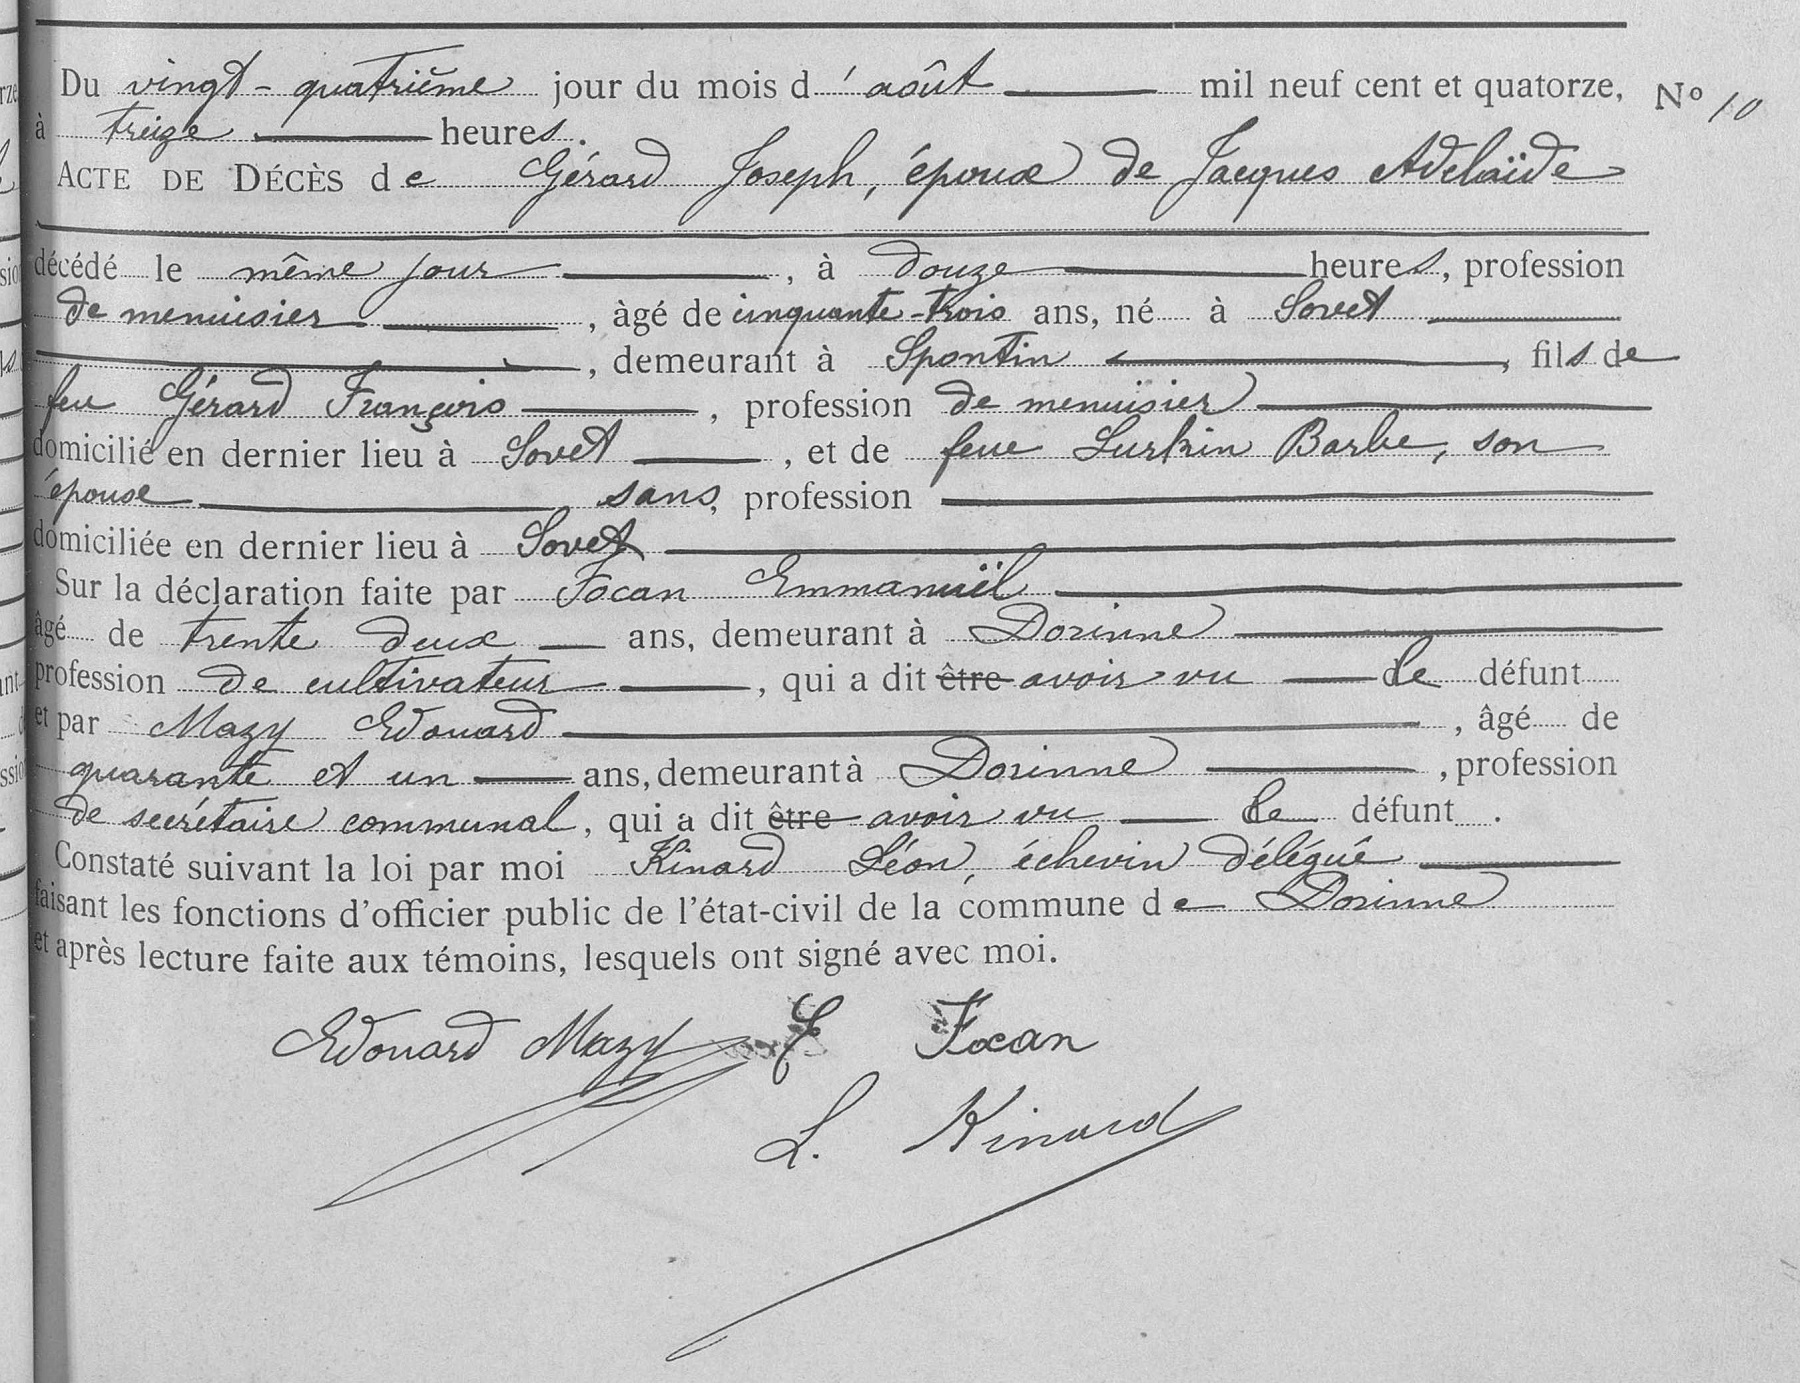 Du vingt-quatrième jour du mois d'août mil neuf cent et quatorze, N° 10
à treize heures.
ACTE DE DÉCÈS de Gérard Joseph, époux de Jacques Adelaïde
décédé le même jour, à douze heures, profession
de menuisier, âgé de cinquante-trois ans, né à Sovet
, demeurant à Spontin, fils de
feu Gérard François, profession de menuisier
domicilié en dernier lieu à Sovet, et de feue Lurkin Barbe, son
épouse sans, profession
domiciliée en dernier lieu à Sovet
Sur la déclaration faite par Focan Emmanuël
âgé de trente deux ans, demeurant à Dorinne
profession de cultivateur, qui a dit être avoir vu le défunt
et par Mazy Edouard, âgé de
quarante et un ans, demeurant à Dorinne, profession
de secrétaire communal, qui a dit être avoir vu le défunt.
Constaté suivant la loi par moi Kinard Léon, échevin délégué
faisant les fonctions d'officier public de l'état-civil de la commune de Dorinne
et après lecture faite aux témoins, lesquels ont signé avec moi.
Edouard Mazy E Focan
L. Kinard